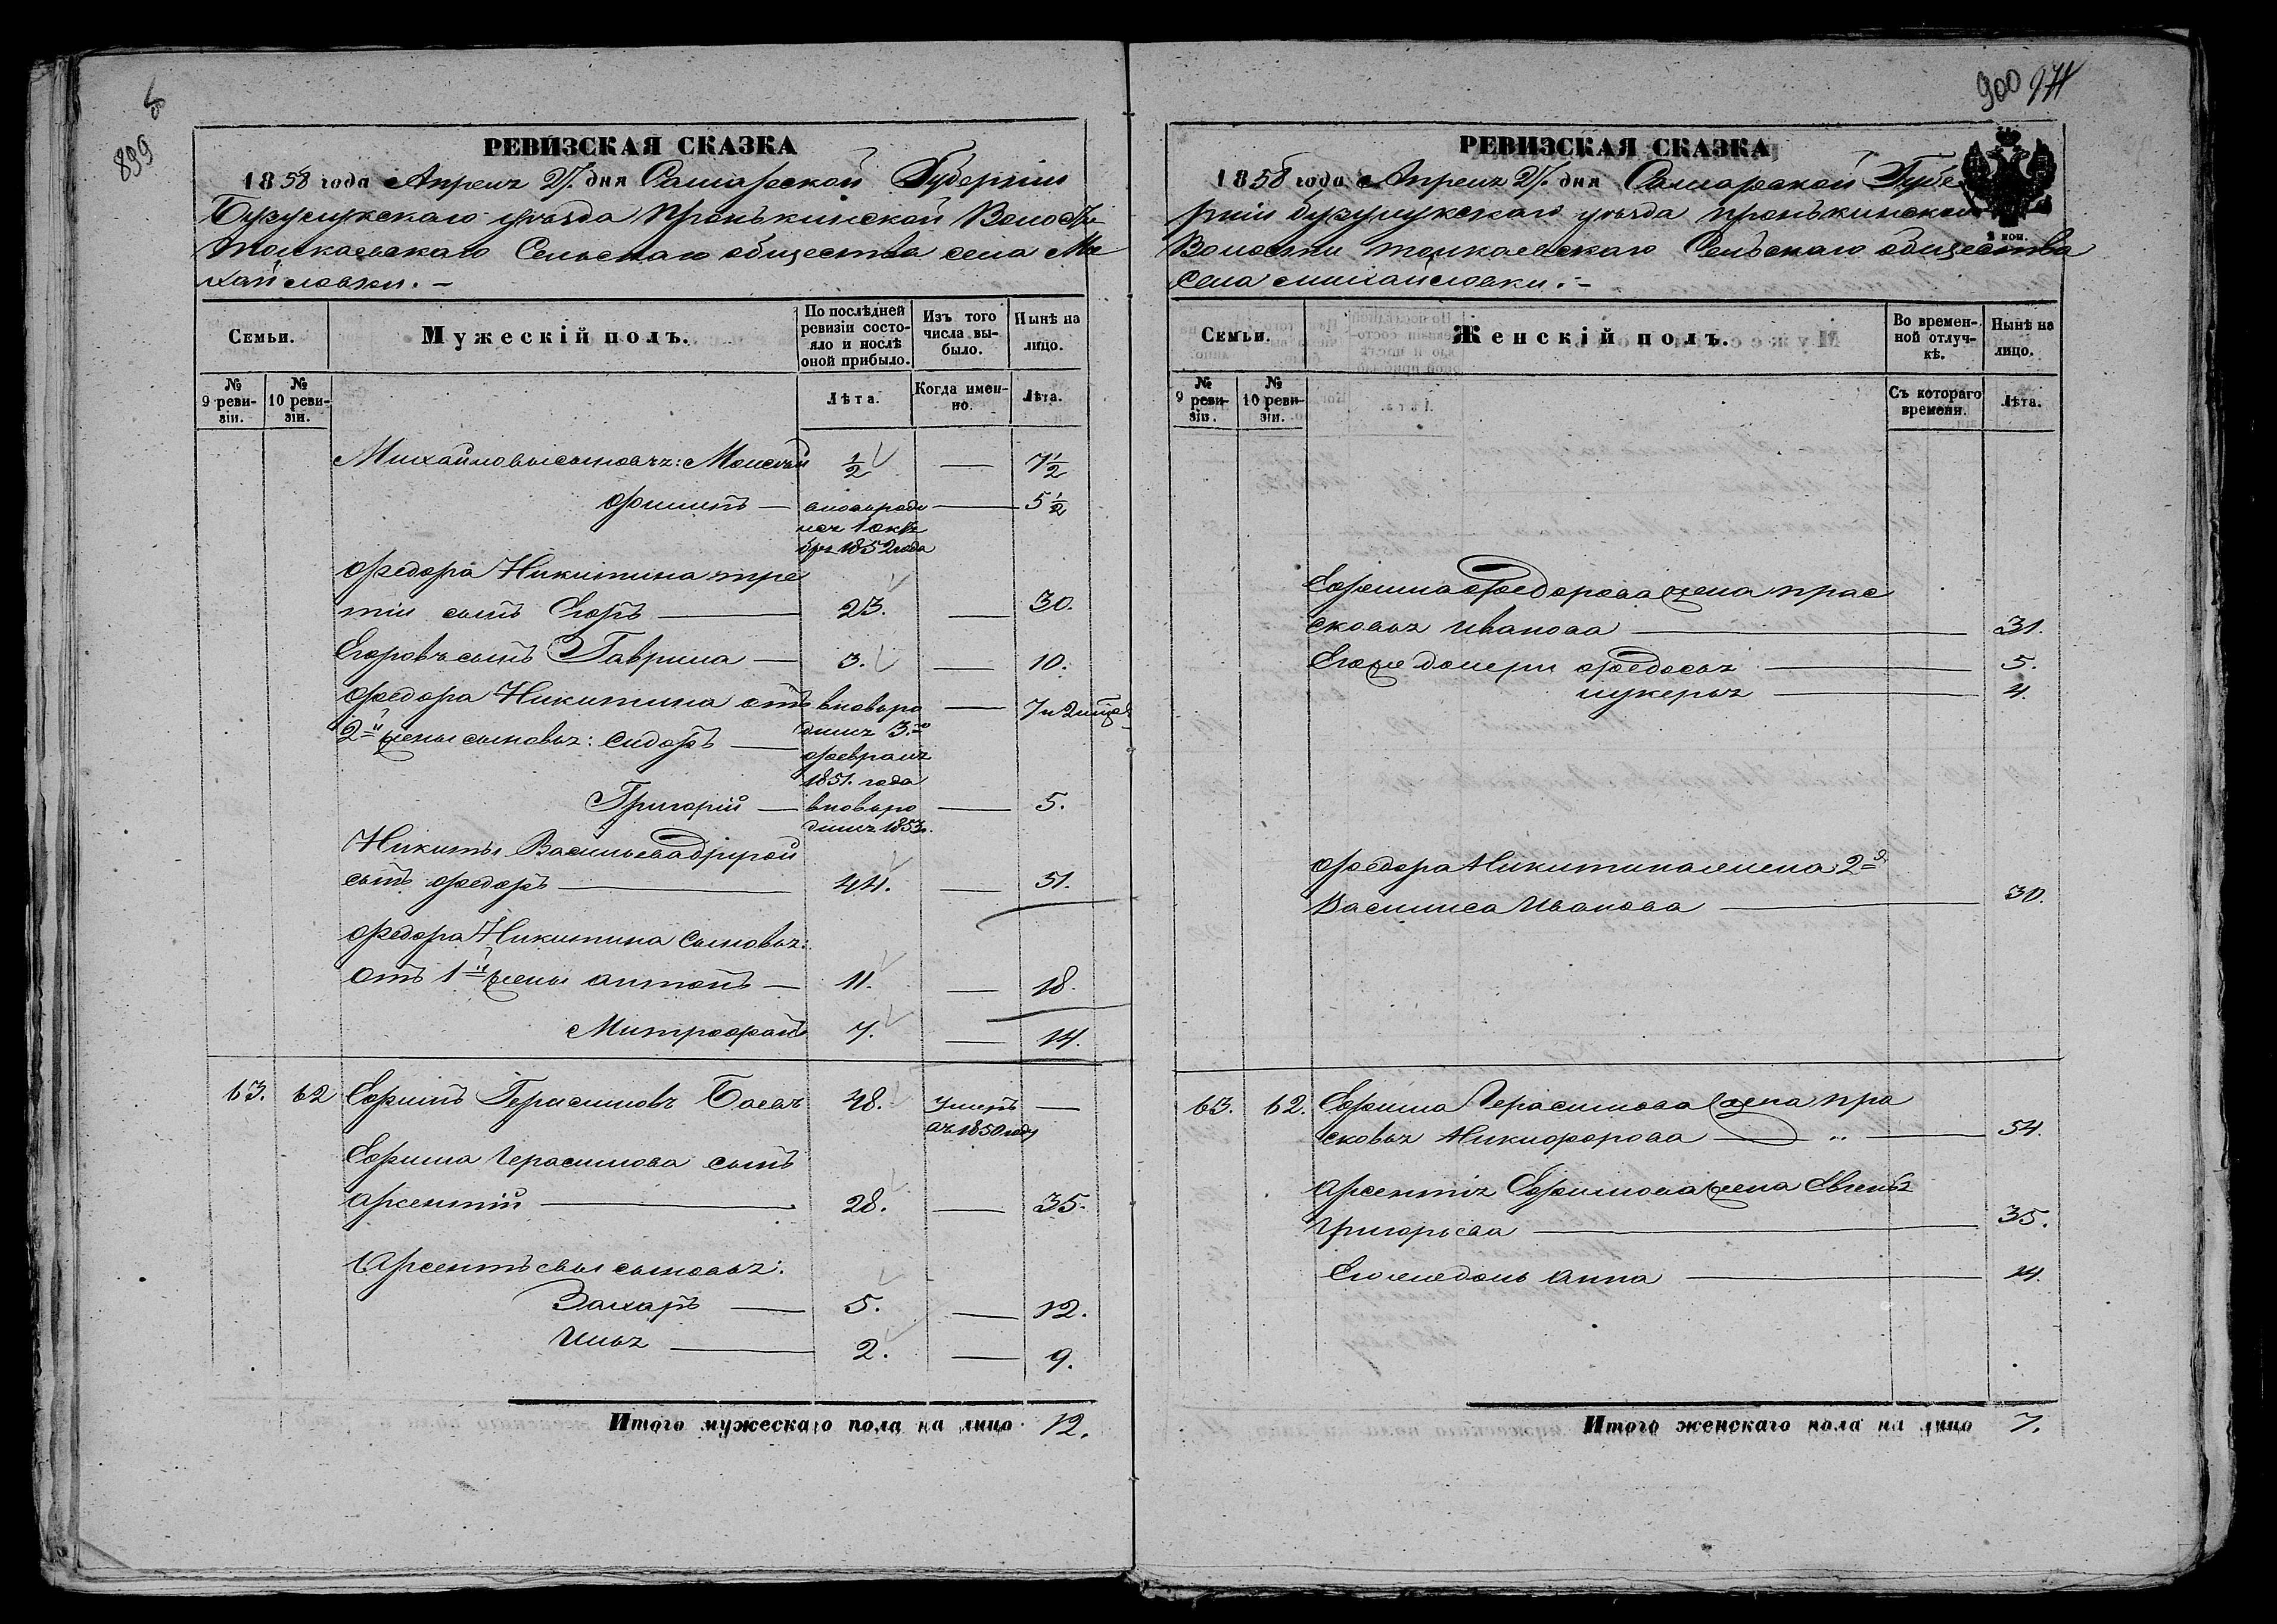 899
РЕВИЗСКАЯ СКАЗКА
1858 года Апреля 27. дня Самарской Губерніи
Бузулукскаго уѣзда Пронькинской Волости
Толкаевскаго Сельскаго общества села Ми
хайловки. –
Семьи.
Мужескій полъ.
По послѣдней ревизіи состояло и послѣ оной прибыло.
Изъ того числа выбыло.
Нынѣ на лицо.
№ 9 ревизіи.
№ 10 ревизіи.
Лѣта.
Когда именно.
Лѣта.
Михайловы сыновья: Моисей ½ — 7½
Филипъ — вновь роди — 5½
лся 1 октя
бря 1852 года
Федора Никитина тре
тій сынъ Егоръ — 23. — 30.
Егоровъ сынъ Гаврила — 3. — 10.
Федора Никитина отъ вновь ро — 7 и 2 мѣся
2й жены сыновья: Сидоръ — дился 3го
февраля
1851. года
Григорій — вновь ро — 5.
дился 1853.
Никиты Васильева другой
сынъ Федоръ — 44. — 51.
Федора Никитина сыновья:
отъ 1й жены Антонъ — 11. — 18.
Митрофанъ 7. — 14.
63. 62 Ефимъ Герасимовъ Баевъ 48. умеръ —
въ 1850 году
Ефима Герасимова сынъ
Арсентій — 28. — 35.
Арсентьевы сыновья:
Захаръ — 5. — 12.
Илья — 2. — 9.
Итого мужескаго пола на лицо 12.
900 971
РЕВИЗСКАЯ СКАЗКА
1858 года Апреля 27. дня Самарской Губе
рніи бузулукскаго уѣзда пронькинской
Волости толкаевскаго Сельскаго общества
Села михайловки. –
2 коп.
Семьи.
Женскій полъ.
Во временной отлучкѣ.
Нынѣ на лицо.
№ 9 ревизіи.
№ 10 ревизіи.
Съ котораго времени.
Лѣта.
Ефима Федорова жена Прас
ковья Иванова — 31.
Егоже дочери Федосья — 5.
Лукерья — 4.
Федора Никитина жена 2я
Василиса Иванова — 30.
63. 62. Ефима Герасимова жена Пра
сковья Никифорова — 54.
Арсентія Ефимова жена Евгенья
Григорьева — 35.
Егоже дочь Анна — 14.
Итого женскаго пола на лицо 7.